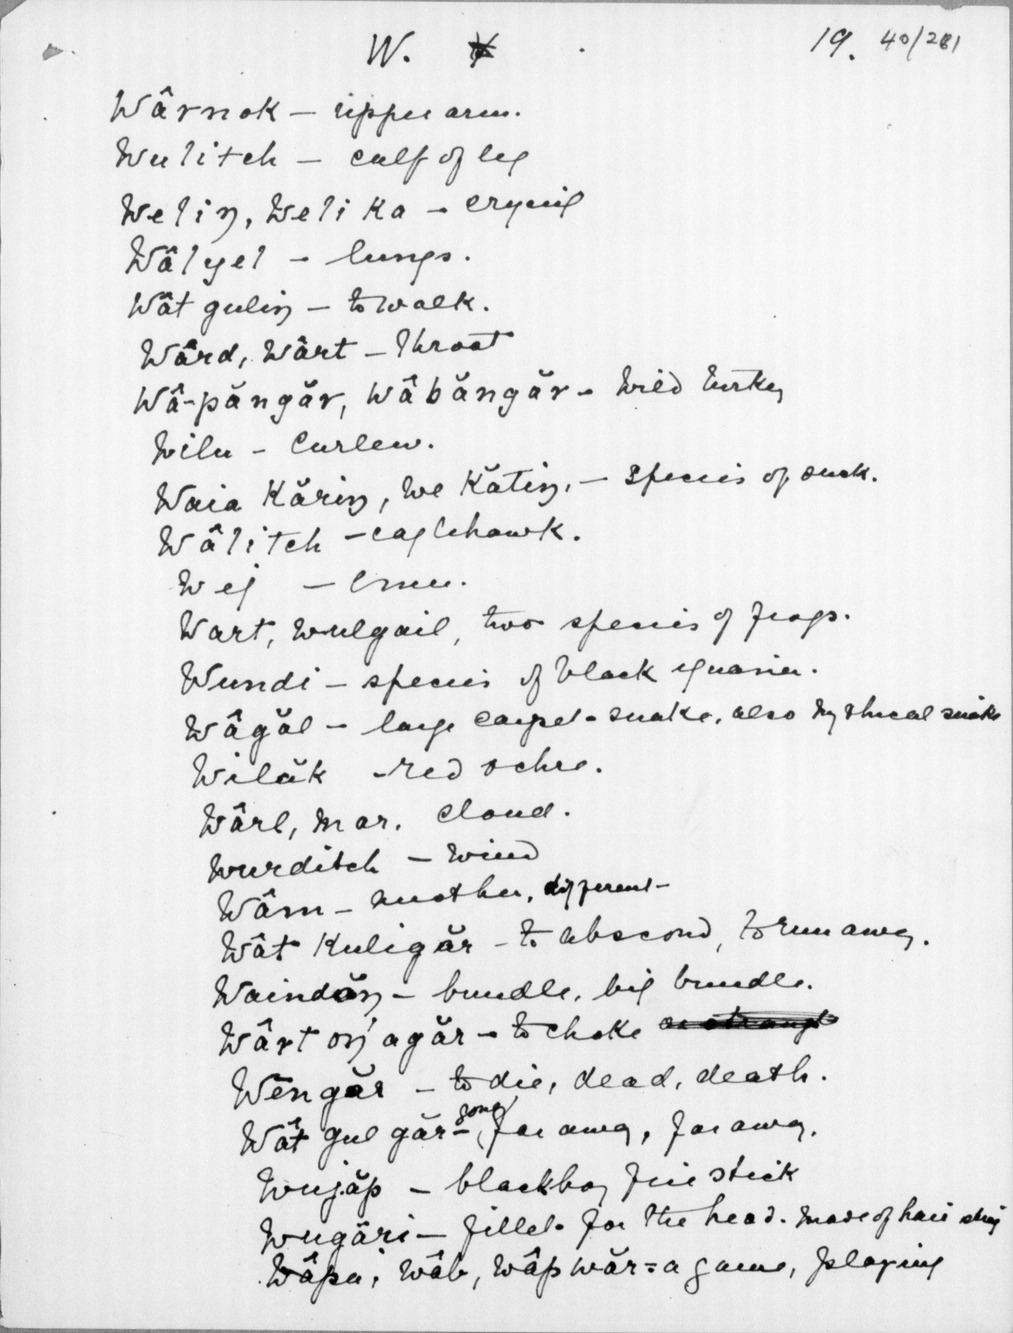 W. 19. 40/281
Wârnok — upper arm.
Wulitch — calf of leg
Weliŋ, Weli ka — crying
Wâlyel — lungs.
Wât guliŋ — to walk.
Wârd, Wârt — throat
Wâ-păngăr, Wâbăngăr — Wild turkey
Wilu — Curlew.
Waia Kăriŋ, We Kătiŋ, — species of duck.
Wâlitch — eaglehawk.
Wej — Emu.
Wart, Wulgail, two species of frogs.
Wundi — species of black iguana.
Wâgăl — large carpet-snake, also mythical snake
Wilăk — red ochre.
Wârl, Mar. Cloud.
Wurditch — Wind
Wâm — another, different
Wât Kuligăr — to abscond, to run away.
Waindăŋ — bundle, big bundle.
Wârt oŋ'agăr — to choke
Wēngăr — to die, dead, death.
Wât gul găr — gone far away, far away.
Wujăp — blackboy fire stick
Wugări — fillet for the head. Made of hair string
Wâpa, Wâb, Wâp wăr = a game, playing